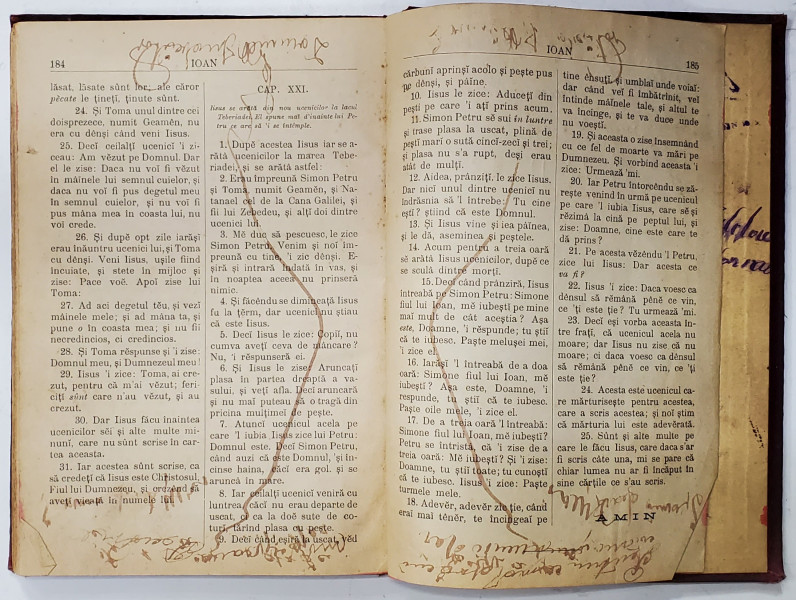 184
IOAN
lăsat, lăsate sûnt lor; ale căror
pĕcate le țineți, ținute sunt.
24. Și Toma unul dintre cei
doisprezece, numit Geamĕn, nu
era cu dênși când veni Iisus.
25. Deci ceilalți ucenici 'i zi-
ceau: Am vĕzut pe Domnul. Dar
el le zise: Daca nu voi fi vĕzut
în mâinele lui semnul cuielor, și
daca nu voi fi pus degetul meu
în semnul cuielor, și nu voi fi
pus mâna mea în coasta lui, nu
voi crede.
26. Și după opt zile iarăși
erau înăuntru ucenicii lui, și Toma
cu dênși. Veni Iisus, ușile fiind
încuiate, și stete în mijloc și
zise: Pace voĕ. Apoi zise lui
Toma:
27. Ad aci degetul tĕu, și vezi
mâinele mele; și ad mâna ta, și
pune o în coasta mea; și nu fii
necredincios, ci credincios.
28. Și Toma rĕspunse și 'i zise:
Domnul meu, și Dumnezeul meu!
29. Iisus 'i zice: Toma, ai cre-
zut, pentru că m'ai vĕzut; feri-
ciți sûnt care n'au vĕzut, și au
crezut.
30. Dar Iisus făcu înaintea
ucenicilor sĕi și alte multe mi-
nuni, care nu sûnt scrise în car-
tea aceasta.
31. Iar acestea sûnt scrise, ca
să credeți că Iisus este Christosul,
Fiul lui Dumnezeu, și crezênd să
aveți vieață în numele lui.
CAP. XXI.
Iisus se arată din nou ucenicilor la lacul
Teberiadei. El spune mai d'inainte lui Pe-
tru ce are să 'i se întêmple.
1. După acestea Iisus iar se a-
rătă ucenicilor la marea Tebe-
riadei, și se arătă astfel:
2. Erau împreună Simon Petru
și Toma numit Geamĕn, și Na-
tanael cel de la Cana Galilei, și
fiii lui Zebedeu, și alți doi dintre
ucenicii lui.
3. Mĕ duc să pescuesc, le zice
Simon Petru. Venim și noi îm-
preună cu tine, 'i zic dênși. E-
șiră și intrară îndată în vas, și
în noaptea aceea nu prinseră
nimic.
4. Și făcêndu se dimineață Iisus
fu la țĕrm, dar ucenicii nu știau
că este Iisus.
5. Deci Iisus le zice: Copii, nu
cumva aveți ceva de mâncare?
Nu, 'i rĕspunseră ei.
6. Și Iisus le zise: Aruncați
plasa în partea dreaptă a va-
sului, și veți afla. Deci aruncară
și nu mai puteau să o tragă din
pricina mulțimei de pește.
7. Atunci ucenicul acela pe
care 'l iubia Iisus zice lui Petru:
Domnul este. Deci Simon Petru,
când auzi că este Domnul, 'și în-
cinse haina, căci era gol. și se
aruncă în mare.
8. Iar ceilalți ucenici veniră cu
luntrea (căci nu erau departe de
uscat, ci ca la doĕ sute de co-
turi) târind plasa cu pește.
9. Deci când eșiră la uscat, vĕd
IOAN
185
cărbuni aprinși acolo și pește pus
pe dênși, și pâine.
10. Iisus le zice: Aduceți din
pești pe care 'i ați prins acum.
11. Simon Petru sĕ sui în luntre
și trase plasa la uscat, plină de
pești mari o sută cinci-zeci și trei;
și plasa nu s'a rupt, deși erau
atât de mulți.
12. Aidea, prânziți, le zice Iisus.
Dar nici unul dintre ucenici nu
îndrăsnia să 'l întrebe: Tu cine
ești? știind că este Domnul.
13. Și Iisus vine și iea pâinea,
și le dă, aseminea și peștele.
14. Acum pentru a treia oară
sĕ arătă Iisus ucenicilor, după ce
se sculă dintre morți.
15. Deci când prânziră, Iisus
întreabă pe Simon Petru: Simone
fiul lui Ioan, mĕ iubești pe mine
mai mult de cât aceștia? Așa
este, Doamne, 'i rĕspunde; tu știi
că te iubesc. Paște melușei mei,
'i zice el.
16. Iarăși 'l întreabă de a doa
oară: Simone fiul lui Ioan, mĕ
iubești? Așa este, Doamne, 'i
respunde, tu știi că te iubesc.
Paște oile mele, 'i zice el.
17. De a treia oară 'l întreabă:
Simone fiul lui Ioan, mĕ iubești?
Petru se întristă, că 'i zise de a
treia oară: Mĕ iubești? Și 'i zise:
Doamne, tu știi toate; tu cunoști
că te iubesc. Iisus 'i zice: Paște
turmele mele.
18. Adevĕr, adevĕr zic ție, când
erai mai tênĕr, te incingeai pe
tine ênsuți și umblai unde voiai:
dar când vei fi îmbătrînit, vei
întinde mâinele tale, și altul te
va încinge, și te va duce unde
nu voești.
19. Și aceasta o zise însemnând
cu ce fel de moarte va mări pe
Dumnezeu. Și vorbind aceasta 'i
zice: Urmează 'mi.
20. Iar Petru întorcêndu se ză-
rește venind în urmă pe ucenicul
pe care 'l iubia Iisus, care sĕ și
rĕzimă la cină pe peptul lui, și
zise: Doamne, cine este care te
dă prins?
21. Pe acesta vĕzêndu 'l Petru,
zice lui Iisus: Dar acesta ce
va fi?
22. Iisus 'i zice: Daca voesc ca
dênsul să rĕmână pênĕ ce vin,
ce 'ți este ție? Tu urmează 'mi.
23. Deci eși vorba aceasta în-
tre frați, că ucenicul acela nu
moare; dar Iisus nu zise că nu
moare; ci daca voesc ca dênsul
să rĕmână pênĕ ce vin, ce 'ți
este ție?
24. Acesta este ucenicul ca-
re mărturisește pentru acestea,
care a scris acestea; și noi știm
că mărturia lui este adevĕrată.
25. Sûnt și alte multe pe
care le făcu Iisus, care daca s'ar
fi scris câte una, mi se pare că
chiar lumea nu ar fi încăput în
sine cărțile ce s'au scris.
AMIN